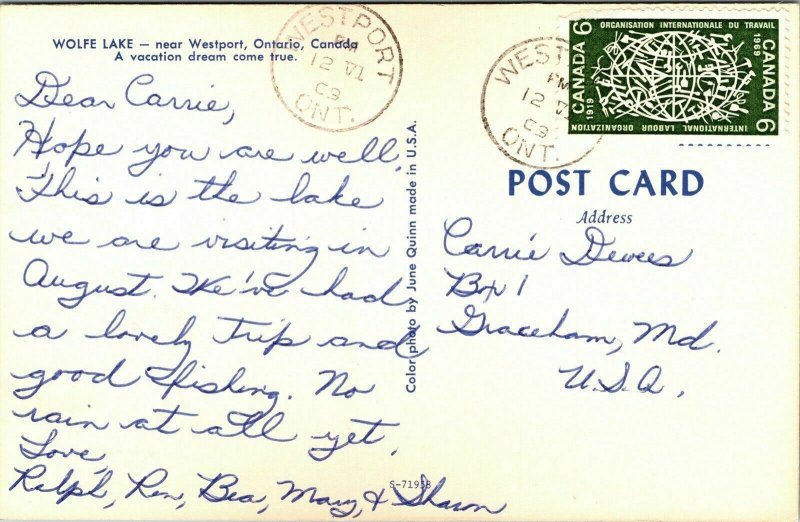 WOLFE LAKE — near Westport, Ontario, Canada
A vacation dream come true.
Dear Carrie,
Hope you are well.
This is the lake
we are visiting in
August. We've had
a lovely trip and
good fishing. No
rain at all yet.
Love,
Ralph, Ren, Bea, Mary, & Sharon
S-71958
Color photo by June Quinn made in U.S.A.
WESTPORT
PM
12 VI
69
ONT.
WESTPORT
PM
12 VI
69
ONT.
ORGANISATION INTERNATIONALE DU TRAVAIL
CANADA 6
1919
1969
CANADA 6
INTERNATIONAL LABOUR ORGANIZATION
POST CARD
Address
Carrie Dewees
Box 1
Graceham, Md.
U.S.A.